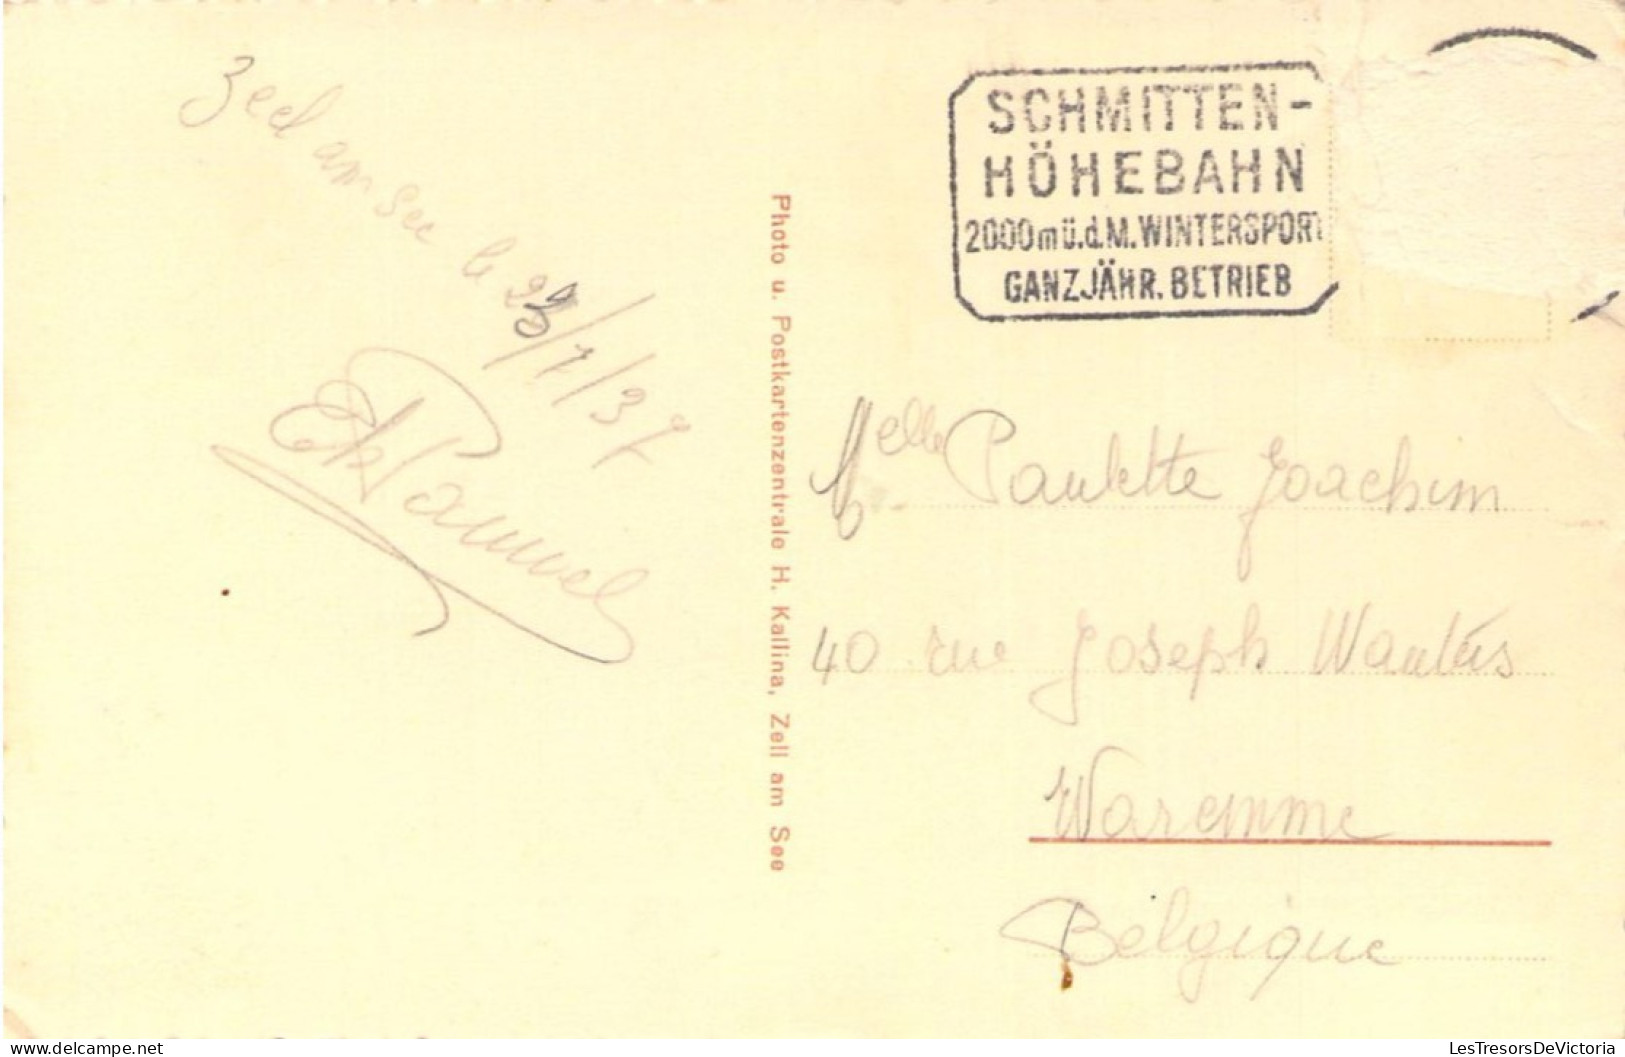 Zeel am See le 23/7/37
SCHMITTEN-
HÖHEBAHN
2000m ü.d.M. WINTERSPORT
GANZJÄHR. BETRIEB
Photo u. Postkartenzentrale H. Kallina, Zell am See
Melle Paulette Joachim
40 rue Joseph Wautérs
Waremme
Belgique
www.delcampe.net
LesTresorsDeVictoria